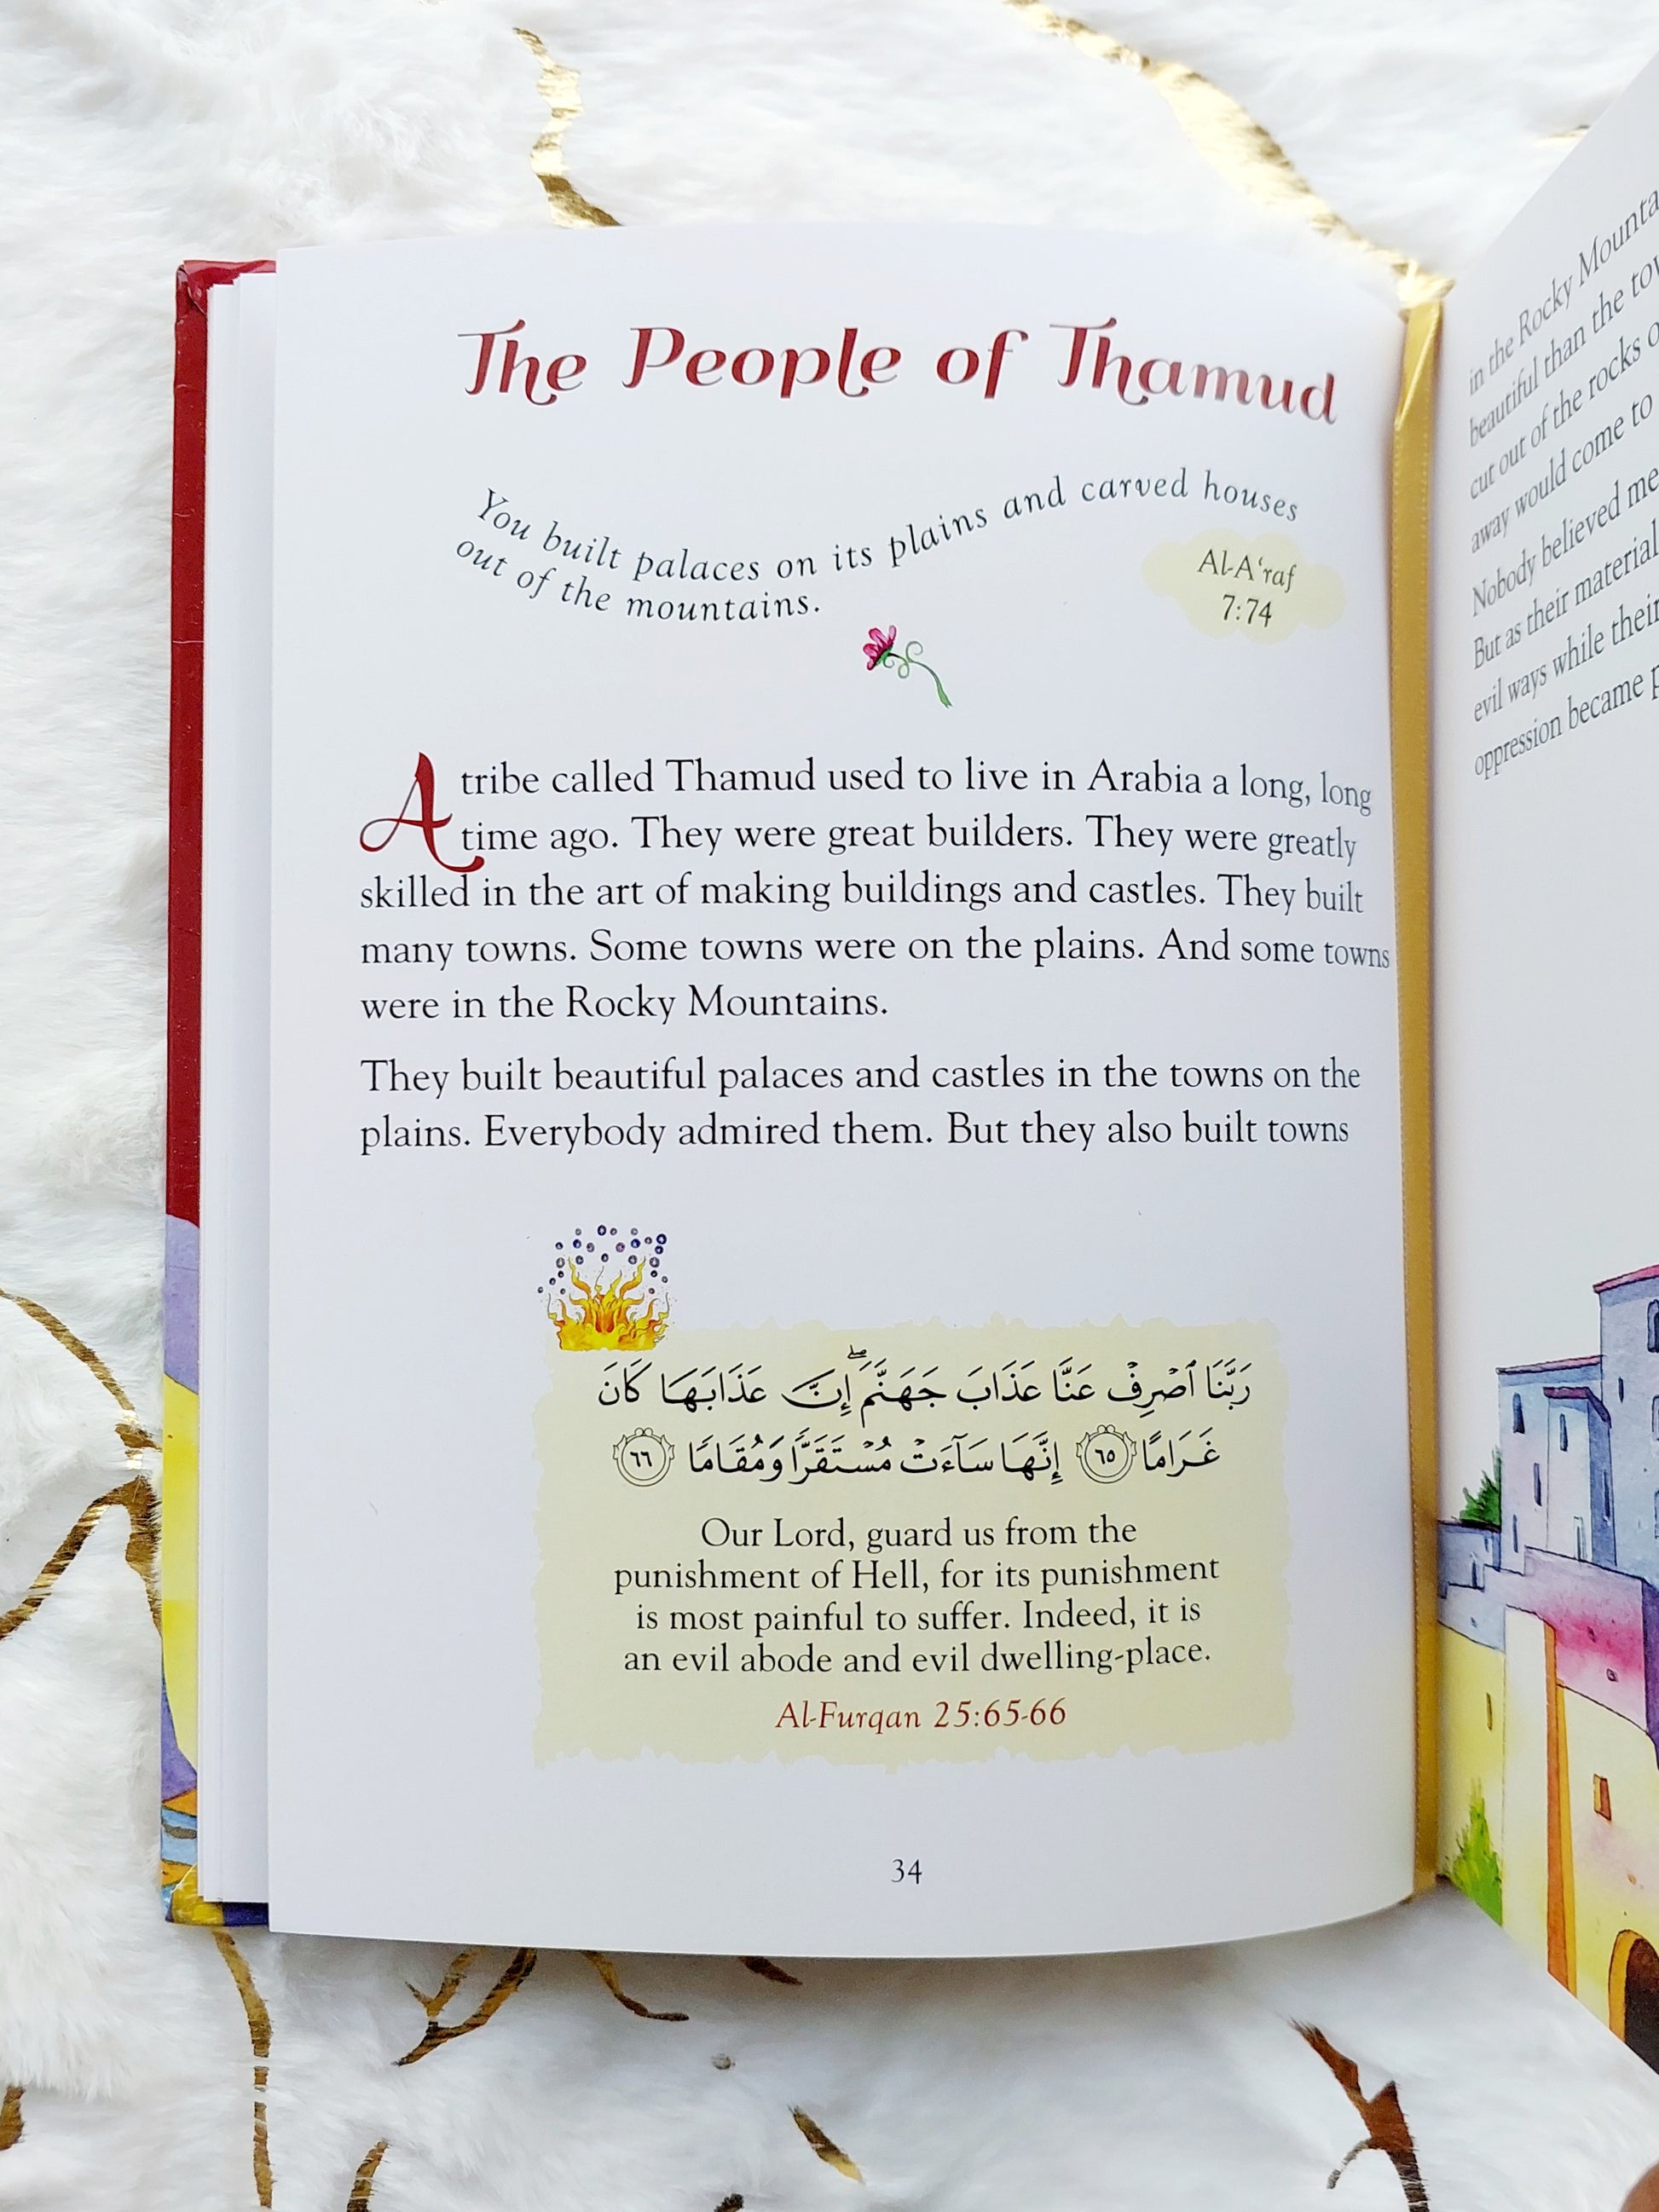 The People of Thamud
You built palaces on its plains and carved houses
out of the mountains.
Al-A‘raf
7:74
A tribe called Thamud used to live in Arabia a long, long
time ago. They were great builders. They were greatly
skilled in the art of making buildings and castles. They built
many towns. Some towns were on the plains. And some towns
were in the Rocky Mountains.
They built beautiful palaces and castles in the towns on the
plains. Everybody admired them. But they also built towns
رَبَّنَا ٱصْرِفْ عَنَّا عَذَابَ جَهَنَّمَ ۖ إِنَّ عَذَابَهَا كَانَ
غَرَامًا ٦٥ إِنَّهَا سَآءَتْ مُسْتَقَرًّا وَمُقَامًا ٦٦
Our Lord, guard us from the
punishment of Hell, for its punishment
is most painful to suffer. Indeed, it is
an evil abode and evil dwelling-place.
Al-Furqan 25:65-66
34
in the Rocky
beautiful than the
cut out of the rocks
away would come to
Nobody believed me
But as their material
evil ways while their
oppression became